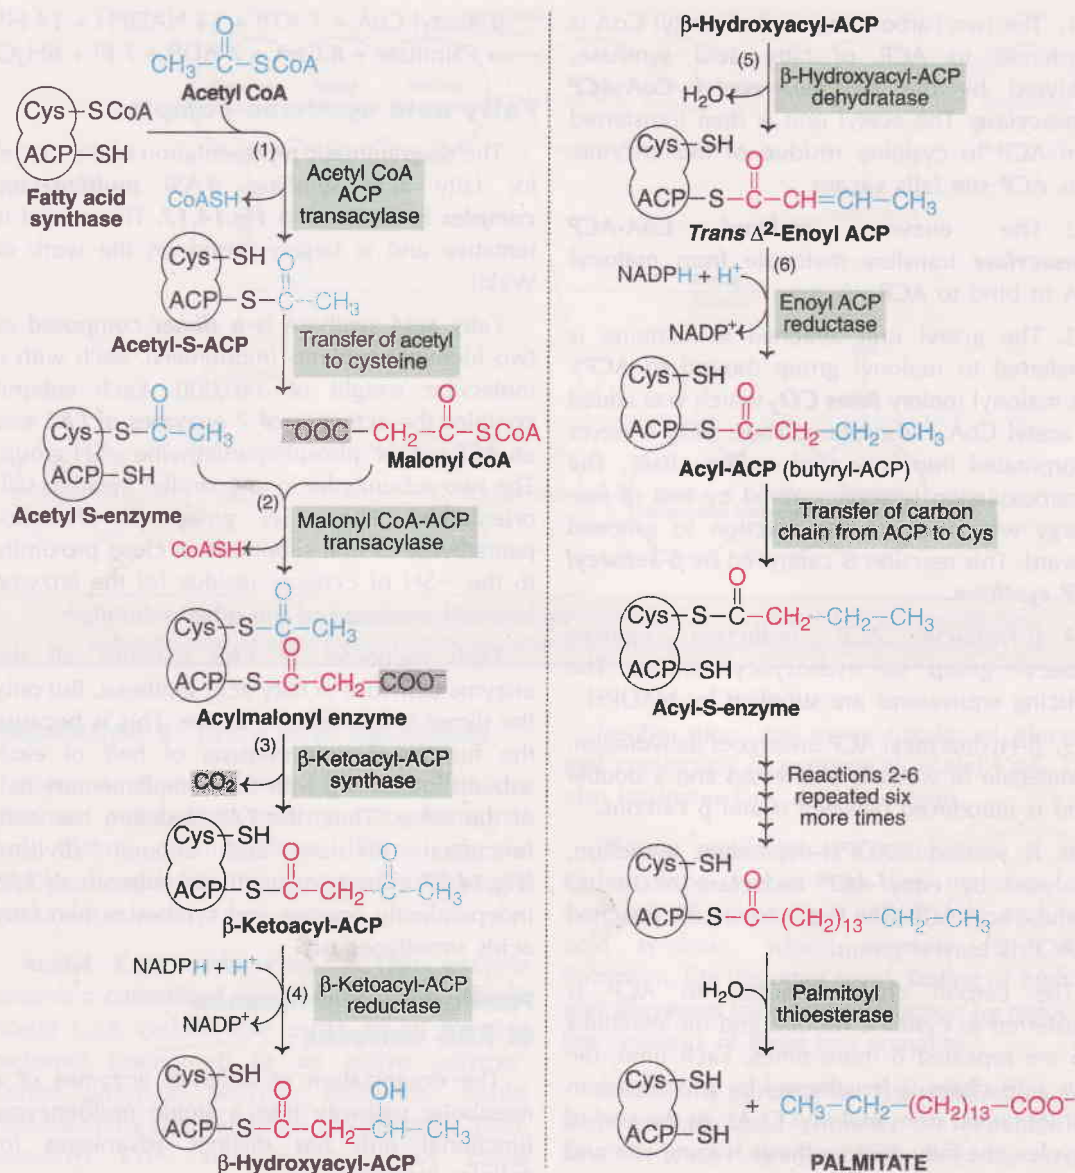 O
CH₃–C–SCoA
Acetyl CoA
Cys–SCoA
ACP–SH
Fatty acid
synthase
(1)
CoASH
Acetyl CoA
ACP
transacylase
Cys–SH O
ACP–S–C–CH₃
Acetyl-S-ACP
Transfer of acetyl
to cysteine
O
Cys–S–C–CH₃
ACP–SH
Acetyl S-enzyme
O
⁻OOC–CH₂–C–SCoA
Malonyl CoA
(2)
CoASH
Malonyl CoA-ACP
transacylase
O
Cys–S–C–CH₃
O
ACP–S–C–CH₂–COO⁻
Acylmalonyl enzyme
(3)
CO₂
β-Ketoacyl-ACP
synthase
Cys–SH
O O
ACP–S–C–CH₂–C–CH₃
β-Ketoacyl-ACP
NADPH + H⁺
(4)
NADP⁺
β-Ketoacyl-ACP
reductase
Cys–SH
O OH
ACP–S–C–CH₂–CH–CH₃
β-Hydroxyacyl-ACP
β-Hydroxyacyl-ACP
(5)
H₂O
β-Hydroxyacyl-ACP
dehydratase
Cys–SH
O
ACP–S–C–CH=CH–CH₃
Trans Δ²-Enoyl ACP
NADPH + H⁺
(6)
NADP⁺
Enoyl ACP
reductase
Cys–SH
O
ACP–S–C–CH₂–CH₂–CH₃
Acyl-ACP (butyryl-ACP)
Transfer of carbon
chain from ACP to Cys
O
Cys–S–C–CH₂–CH₂–CH₃
ACP–SH
Acyl-S-enzyme
Reactions 2-6
repeated six
more times
Cys–SH
O
ACP–S–C–(CH₂)₁₃–CH₂–CH₃
H₂O
Palmitoyl
thioesterase
Cys–SH
ACP–SH
+ CH₃–CH₂–(CH₂)₁₃–COO⁻
PALMITATE